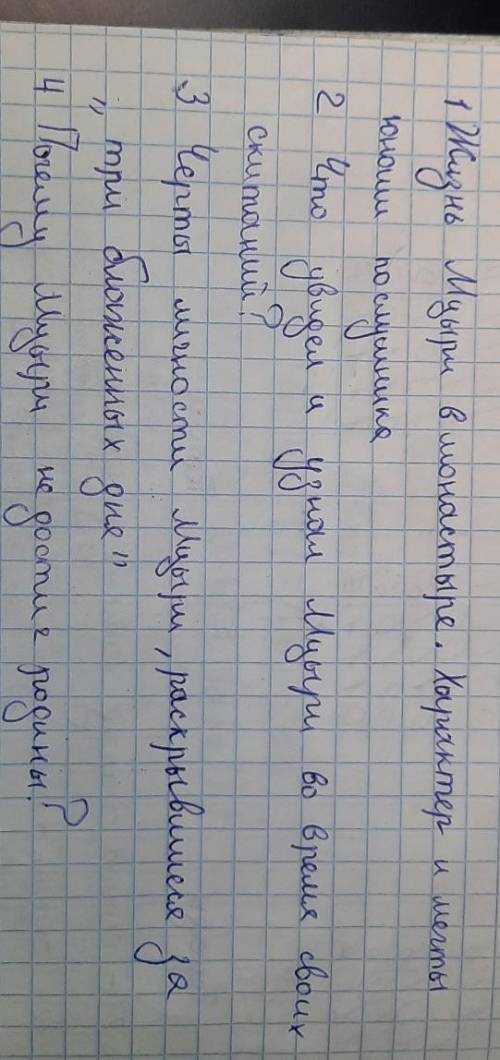 1 Жизнь Мцыри в монастыре. Характер и мечты
юноши послушника
2 Что увидел и узнал Мцыри во время своих
скитаний?
3 Черты моности Мцыри, раскрывшиеся за
„ три блаженных дне"
4 Почему Мцыри не достиг родины?